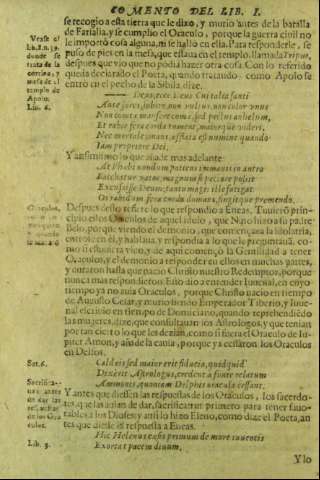 COMENTO DEL LIB. I.
se recogio a esta tierra que le dixo, y murio antes de la batalla
de Farsalia, y se cumplio el Oraculo, porque la guerra civil no
le importò cosa alguna, ni se hallò en ella. Para responderle, se
puso de pies en la mesa, que estaua en el templo, llamada Tripus,
despues que vio que no podia hazer otra cosa. Con lo referido
queda declarado el Poeta, quando tratando como Apolo se
entrò en el pecho de la Sibila dize.
Deus, ecce Deus
Ante fores, subito non vultus, non color vnus
Non comtæ mansere comæ, sed pectus anhelum,
Et rabie fera corda tument, maiorque videri,
Nec mortale sonans, afflata est numine quando
Iam propiore Dei.
Y assimismo lo que añade mas adelante
At Phœbi nondum patiens immanis in antro
Bacchatur vates, magnum si pectore possit
Excussisse Deum, tanto magis ille fatigat
Os rabidum fera corda domans, fingitque premendo.
Despues desto refiere lo que respondio a Eneas. Tuuierõ prin-
cipio estos Oraculos de aquel idolo, que Nino hizo a su padre
Belo, porque viendo el demonio, que començaua la idolatria,
entrose en èl, y hablaua, y respondia a lo que le preguntauã, co-
mo
O raculos, y el demonio a responder en ellos en muchas partes,
y duraron hasta que nacio Christo nuestro Redemptor, porque
nunca mas respondieron. Esto dio a entender Iuuenal, en cuyo
tiempo ya no auia Oraculos, porque Christo nacio en tiempo
de Augusto Cesar, y murio siendo Emperador Tiberio, y Iuue-
nal escriuio en tiempo de Domiciano, quando reprehendiẽdo
las mugeres, dize, que consultauan los Astrologos, y que tenian
por tan cierto lo que les dezian, como si fuera el Oraculo de Iu-
piter Amon, y añade la causa, porque ya cessaron los Oraculos
en Delfos.
Sat. 6.
Caldæis sed maior erit fiducia, quidquid
Dixerit Astrologus, credent a fonte relatum
Ammonis, quoniam Delphis oracula cessant.
Y antes que diessen las respuestas de los Oraculos, los sacerdo-
tes, que las auian de dar, sacrificauan primero para tener fauo-
rables a los Dioses, y assi lo hizo Eleno, como dize el Poeta, an-
tes que diesse la respuesta a Eneas.
Lib. 3.
Hic Helenus cæsis primum de more iuuencis
Exorat pacem diuum,
Y lo